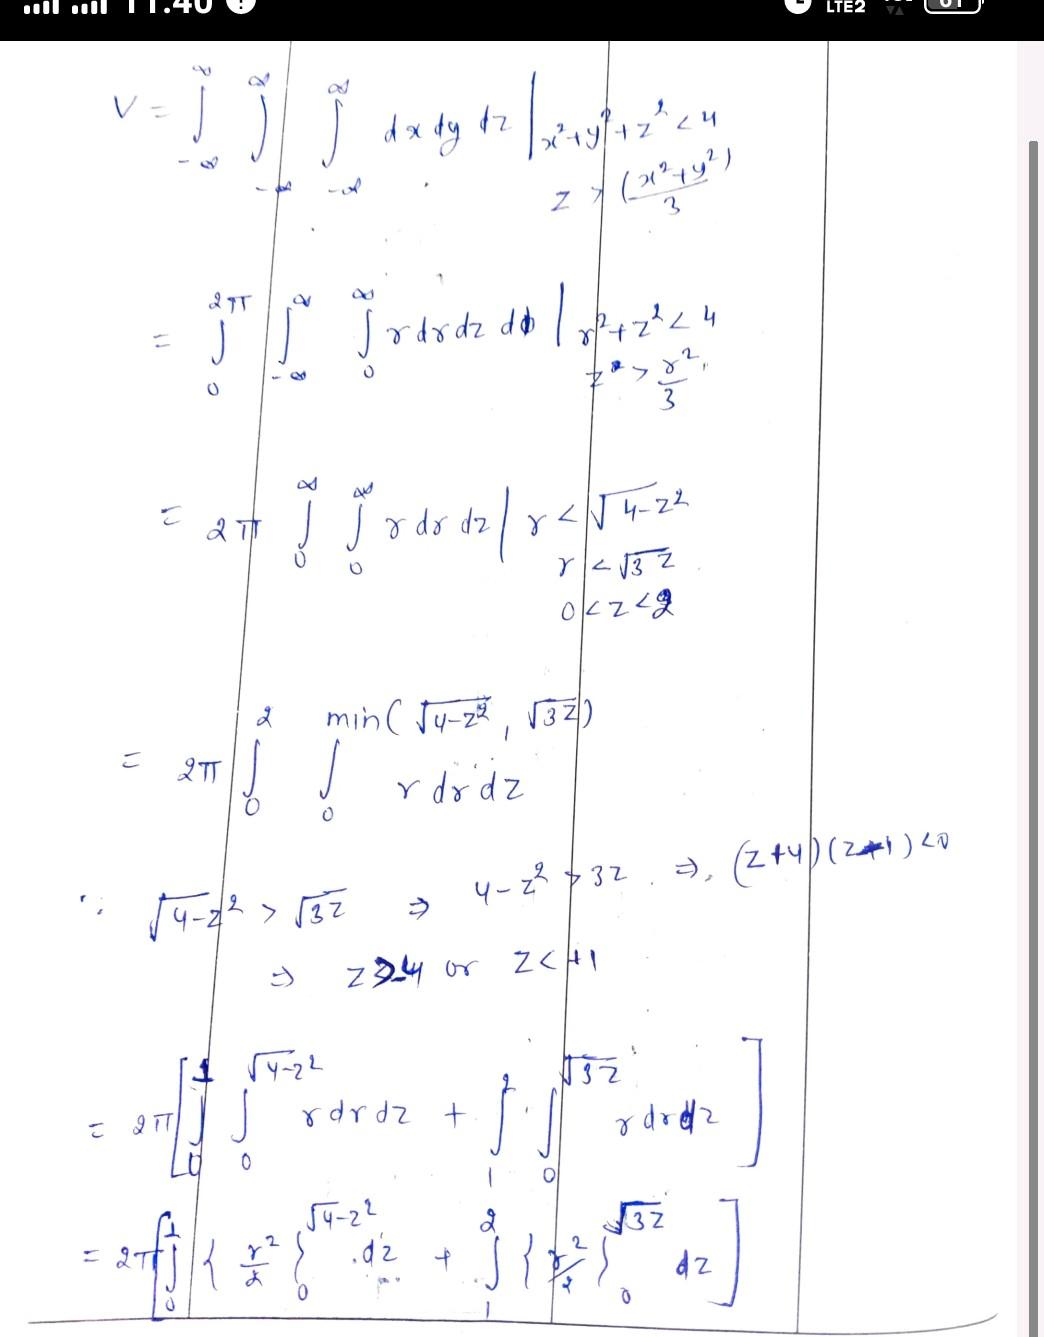 11:40
LTE2
61
V = ∫_{-∞}^{∞} ∫_{-∞}^{∞} ∫_{-∞}^{∞} dx dy dz | x²+y²+z² < 4
z > (x²+y²)/3
= ∫_0^{2π} ∫_{-∞}^{∞} ∫_0^{∞} r dr dz dϕ | r²+z² < 4
z > r²/3
= 2π ∫_0^{∞} ∫_0^{∞} r dr dz | r < √(4-z²)
r < √(3z)
0 < z < 2
= 2π ∫_0^2 ∫_0^{min(√(4-z²), √(3z))} r dr dz
∵ √(4-z²) > √(3z) ⇒ 4-z² > 3z ⇒ (z+4)(z-1) < 0
⇒ z > -4 or z < +1
= 2π [ ∫_0^1 ∫_0^{√(4-z²)} r dr dz + ∫_1^2 ∫_0^{√(3z)} r dr dz ]
= 2π [ ∫_0^1 { r²/2 }_0^{√(4-z²)} . dz + ∫_1^2 { r²/2 }_0^{√(3z)} dz ]